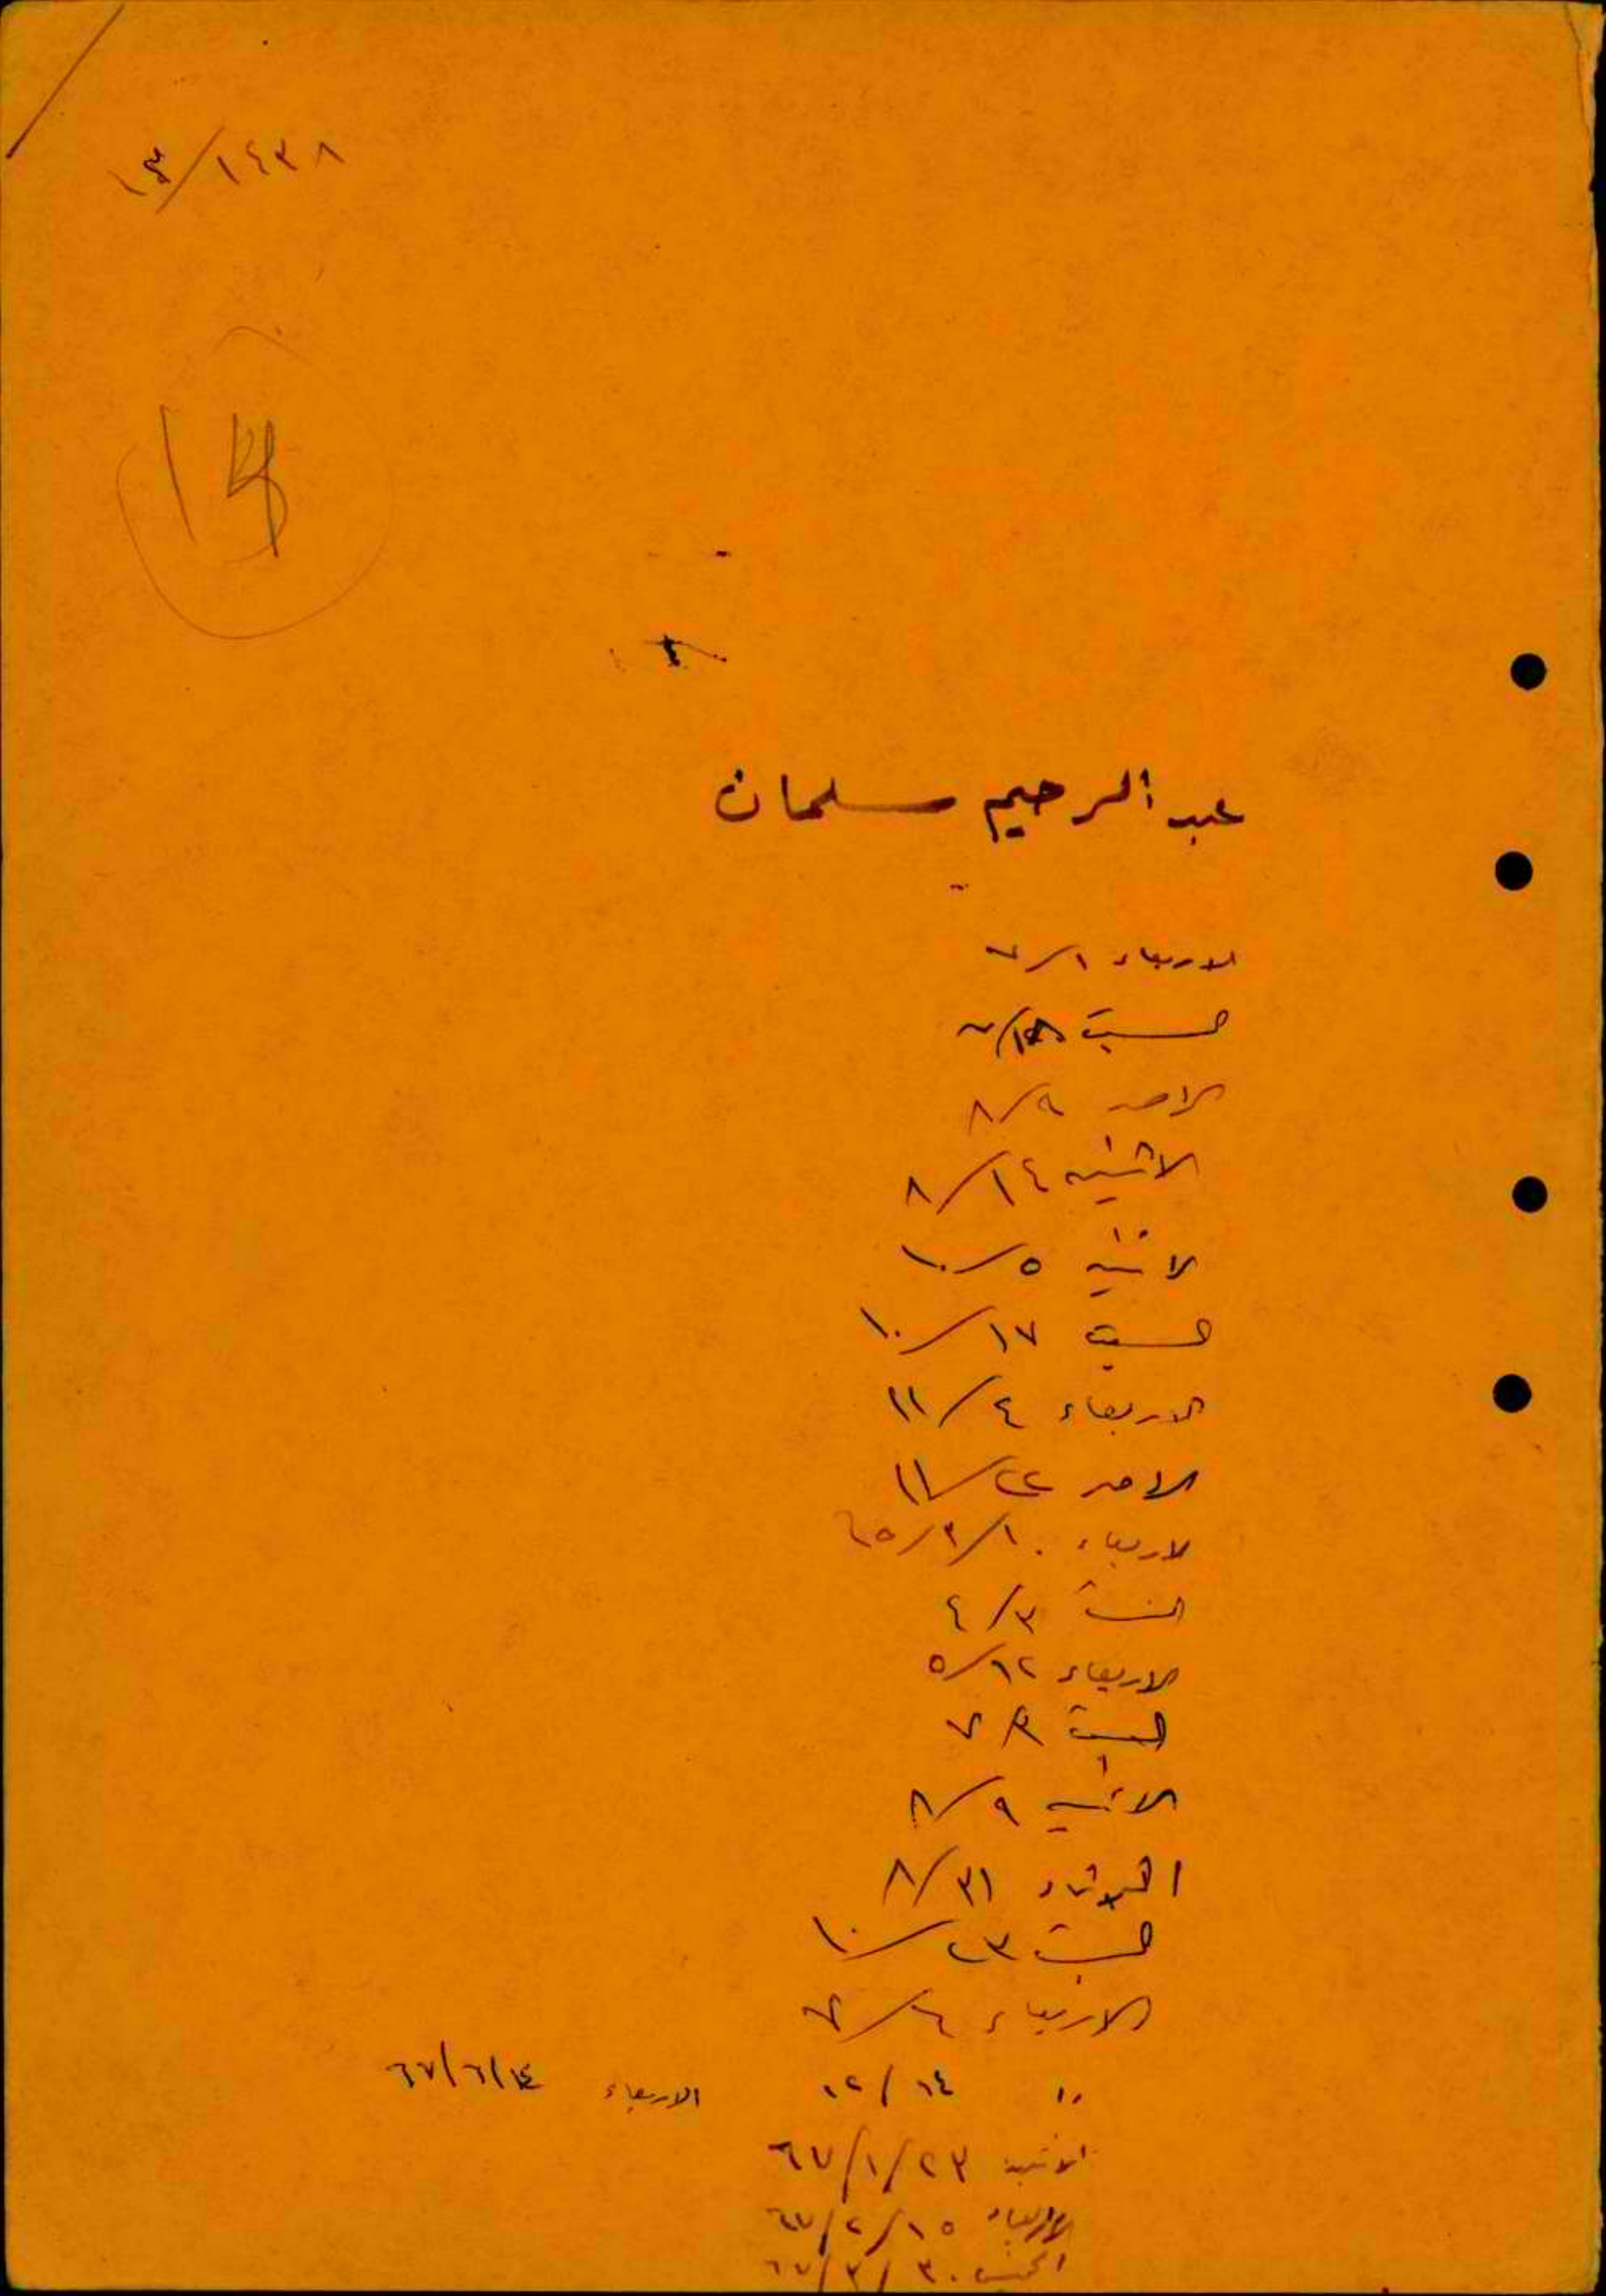 ١٣/١٤٣٨
١٤
عبد الرحيم سلمان
الاربعاء ١/٧
السبت ١٨/٧
الاحد ٩/٨
الاثنين ٢٤/٨
الاثنين ٥/١٠
السبت ١٧/١٠
الاربعاء ٤/١١
الاحد ٢٢/١١
الاربعاء ١٠/٣/٦٥
السبت ٣/٤
الاربعاء ١٢/٥
السبت ٣/٧
الاثنين ٩/٨
الثلاثاء ٣١/٨
السبت ٢٣/١٠
الاربعاء
،، ١٤/١٢ الاربعاء ١٤/٦/٦٧
الاثنين ٢٣/١/٦٧
الاربعاء ١٥/٢/٦٧
الخميس ٣٠/٣/٦٧